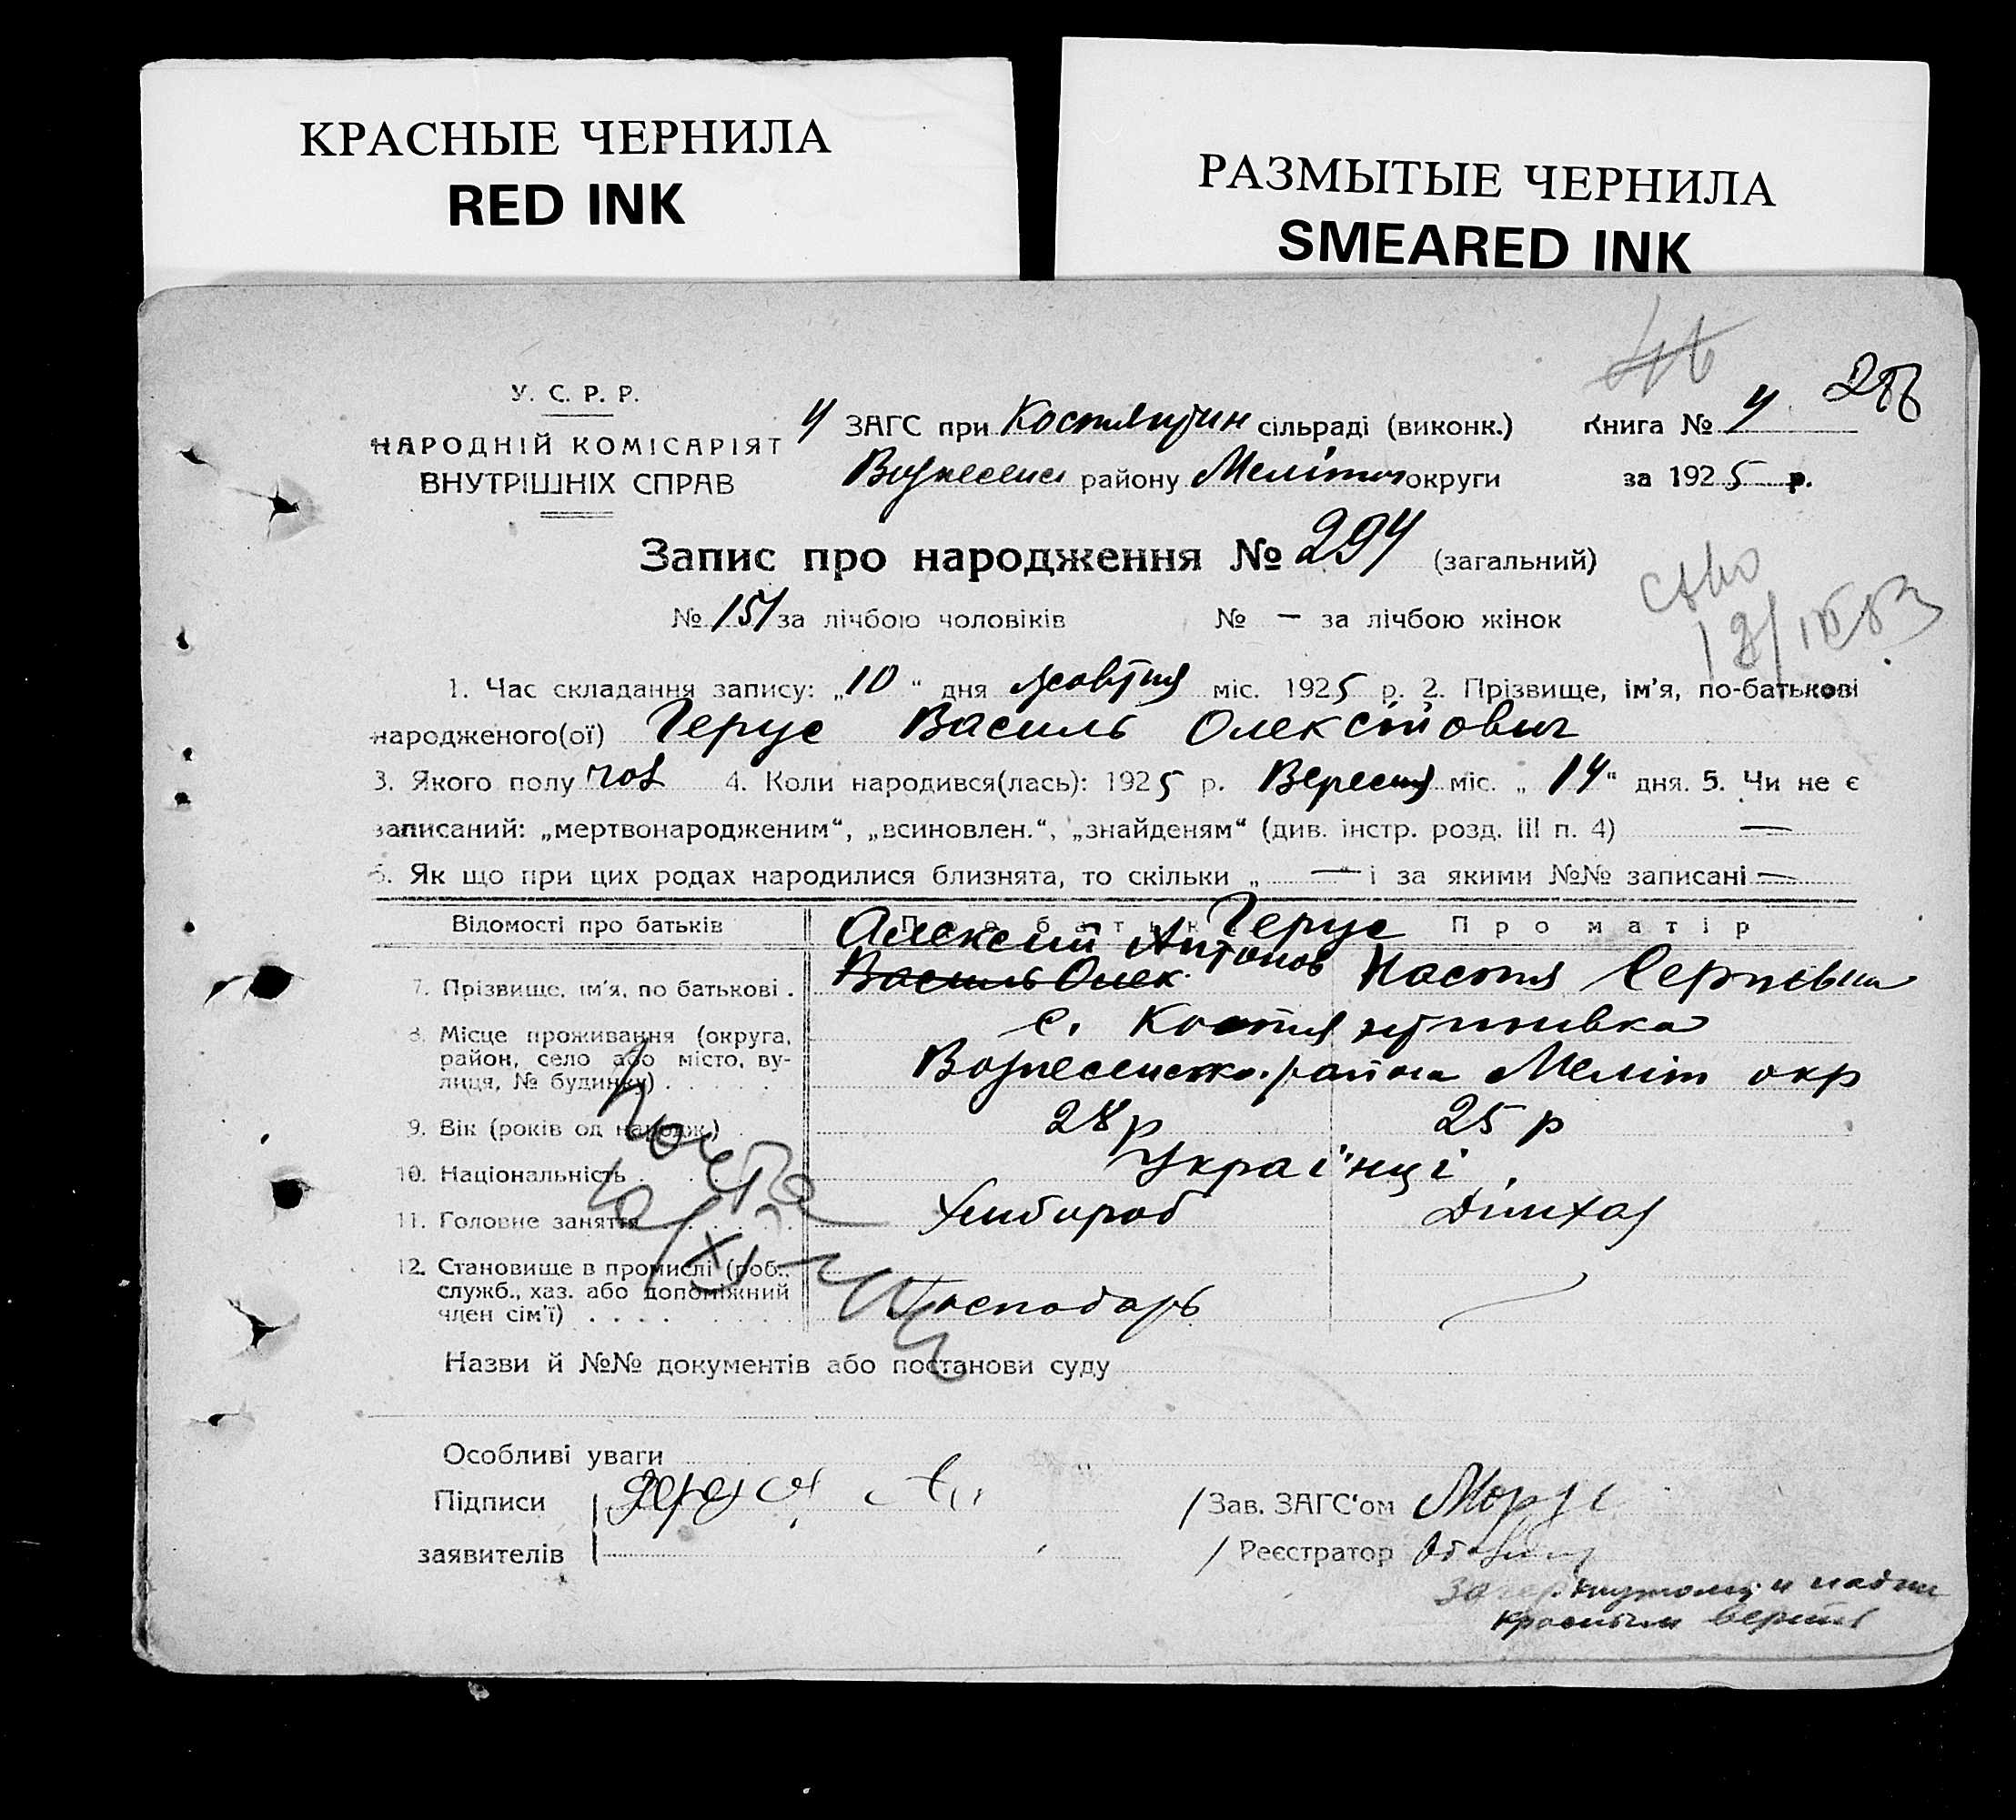 КРАСНЫЕ ЧЕРНИЛА
RED INK
РАЗМЫТЫЕ ЧЕРНИЛА
SMEARED INK
У. С. Р. Р.
НАРОДНІЙ КОМІСАРІЯТ
ВНУТРІШНІХ СПРАВ
ЗАГС при Костянтин сільраді (виконк.)
Вознесенс району Меліто округи
Книга № 4
за 1925 р.
Запис про народження № 294 (загальний)
№ 151 за лічбою чоловіків № — за лічбою жінок
1. Час складання запису: „10“ дня жовтня міс. 1925 р. 2. Прізвище, ім'я, по-батькові
народженого(ої) Герус Василь Олексійович
3. Якого полу чол 4. Коли народився(лась): 1925 р. Вересня міс. „14“ дня. 5. Чи не є
записаний: „мертвонародженим“, „всиновлен.“, „знайденям“ (див. інстр. розд. III п. 4) —
6. Як що при цих родах народилися близнята, то скільки „ — і за якими №№ записані —
Відомості про батьків Про батька Герус Про матір
Алексій Антонов
7. Прізвище, ім'я, по батькові . Василь Олек Настя Сергіевна
8. Місце проживання (округа, с. Костянтинивка
район, село або місто, ву-
лиця, № будинку) . Вознесенско. района Меліт окр
9. Вік (років од народж.) 28 р 25 р
10. Національність . Українці
11. Головне заняття Хлибороб
12. Становище в промислі (роб.,
служб., хаз. або допоміжний
член сім'ї) . . . . Господарь
Назви й №№ документів або постанови суду
Особливі уваги
Підписи
заявителів
Зав. ЗАГС'ом
Реєстратор
красным